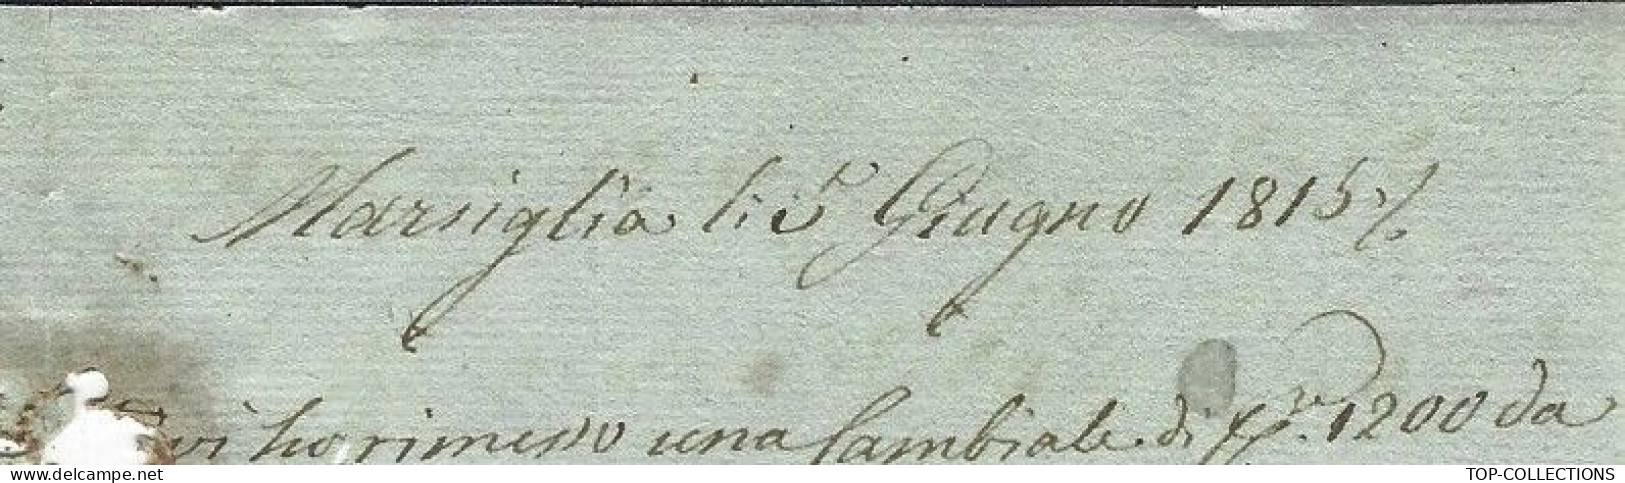 Marsiglia li 5 Giugno 1815
vi ho rimesso una Cambiale di fr. 1200 da
www.delcampe.net
TOP-COLLECTIONS